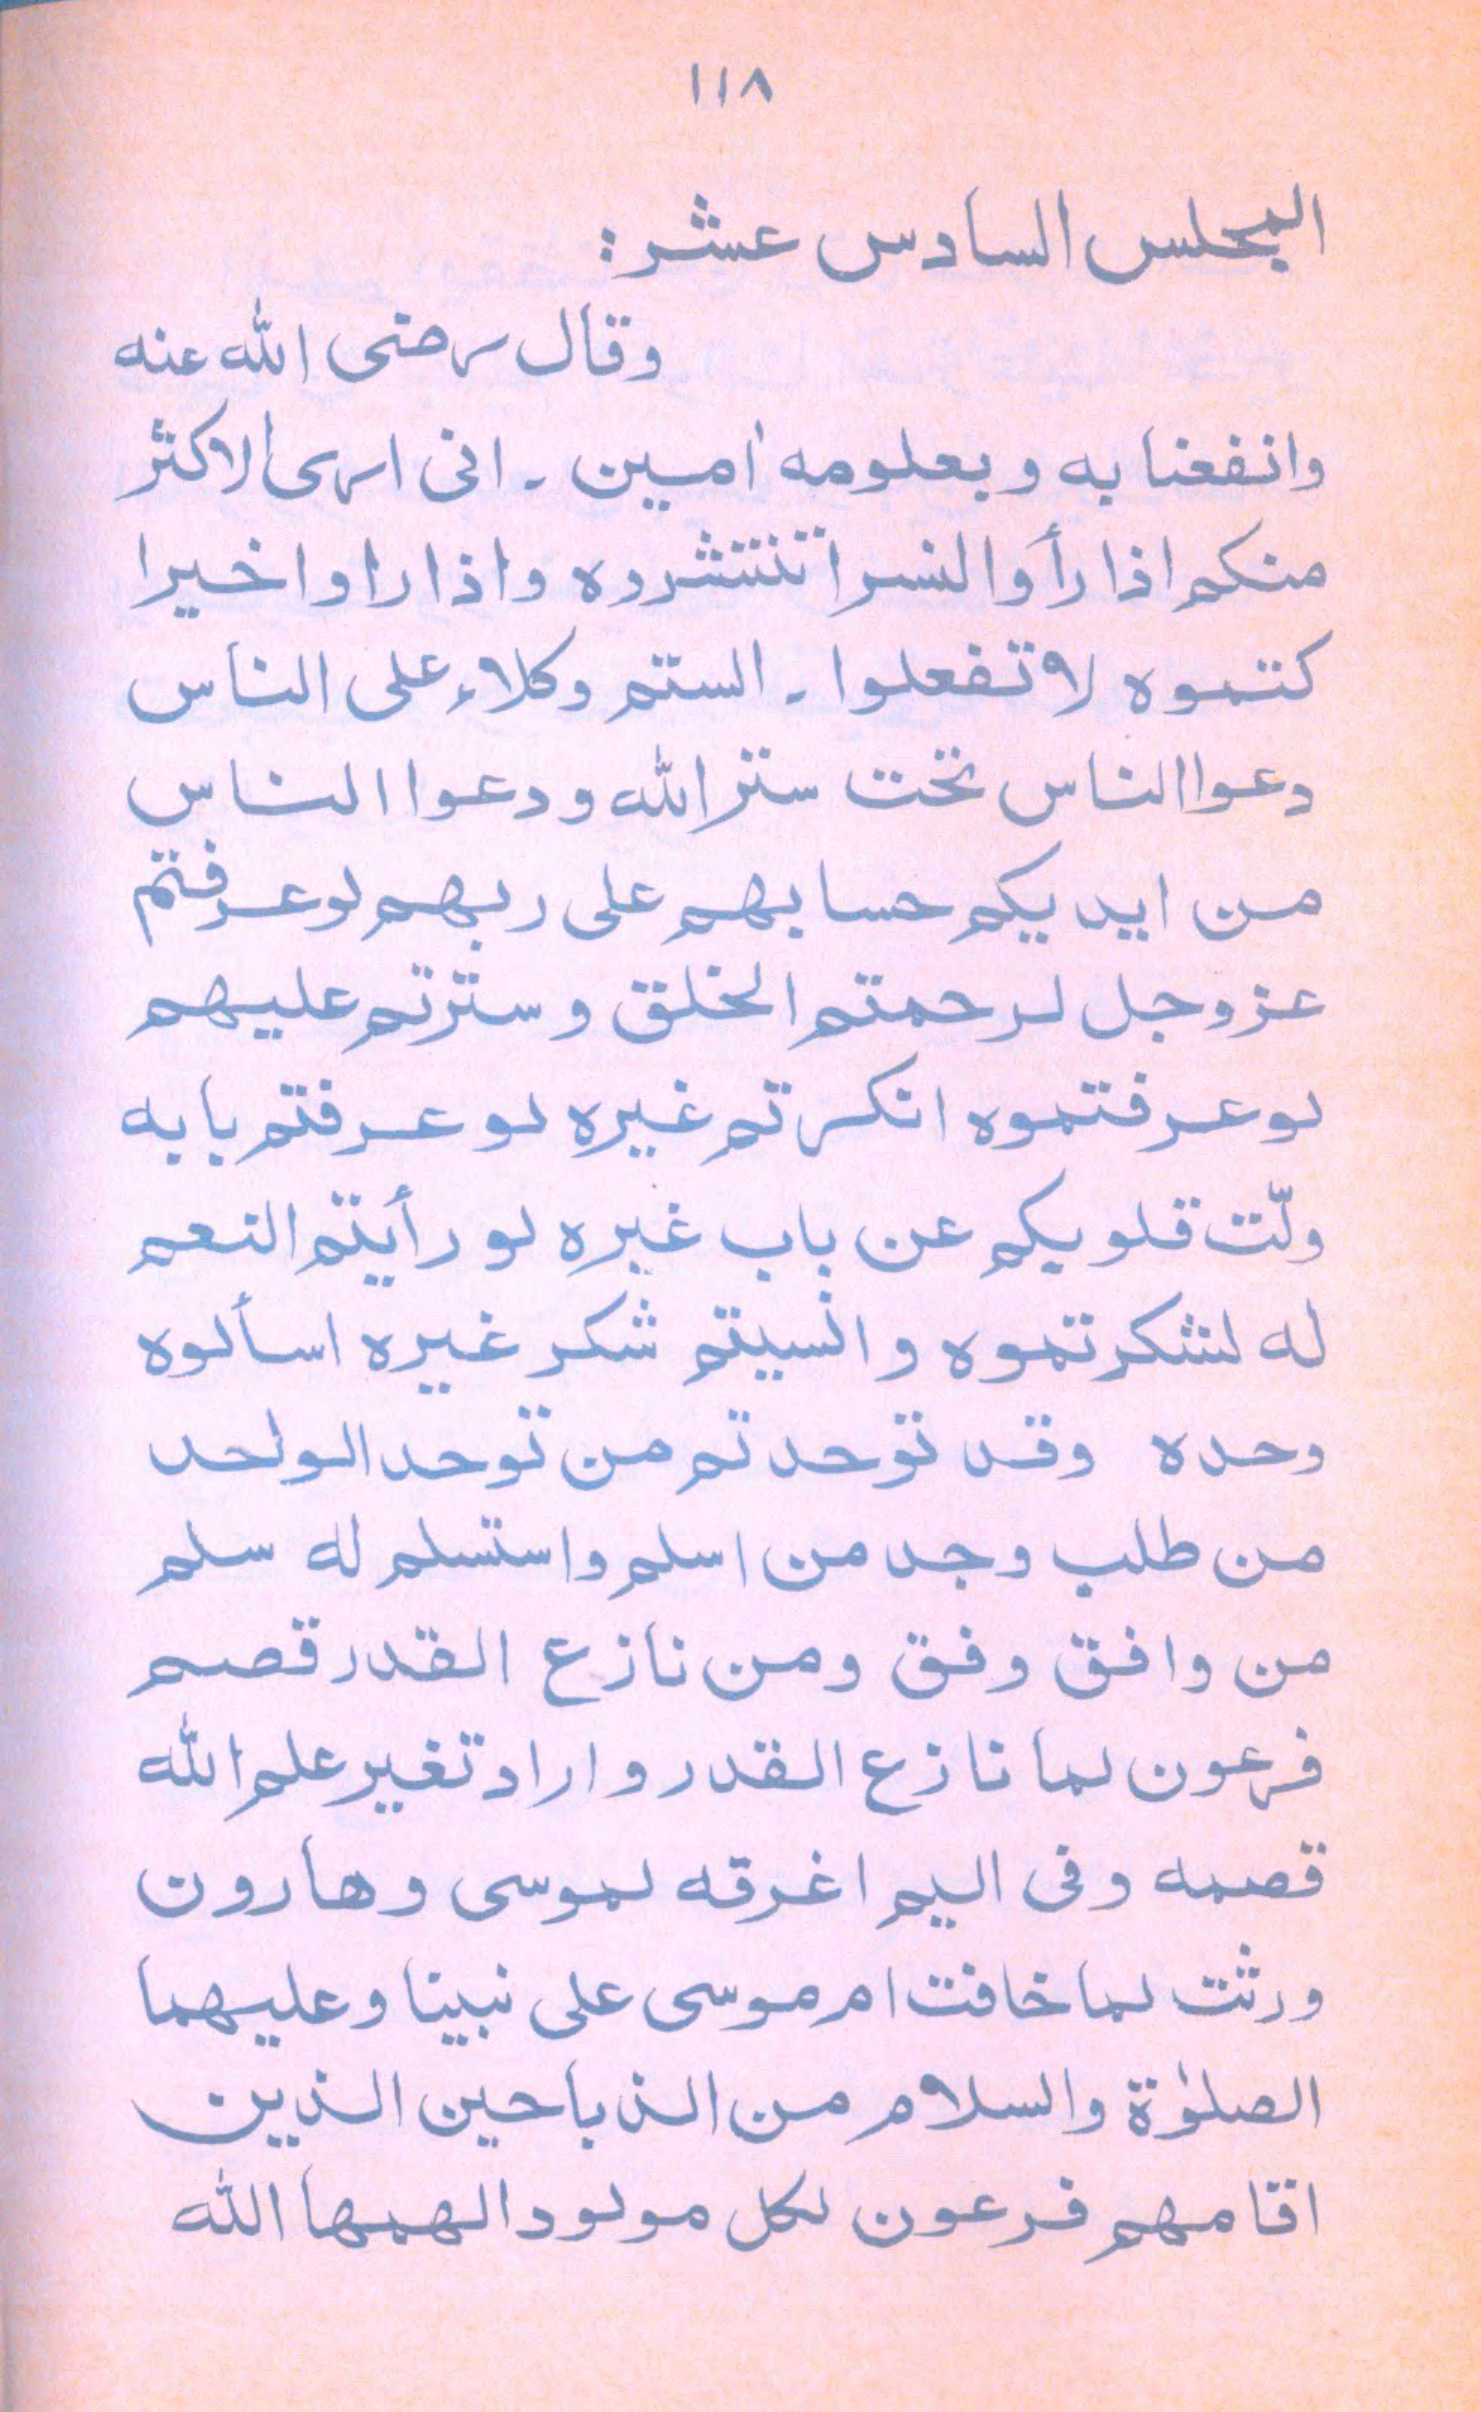 ١١٨
المجلس السادس عشر:
وقال رضى الله عنه
وانفعنا به و بعلومه امين ۔ انى ارى الاكثر
منكم اذا رأوا لنسرا تنتشروه واذا راوا خيرا
كتموه لا تفعلوا ۔ الستم وكلاء على الناس
دعوا الناس تحت ستر الله ودعوا الناس
من ايديكم حسابهم على ربهم لو عرفتم
عز وجل لرحمتم الخلق وسترتم عليهم
لو عرفتموه انكرتم غيره لو عرفتم بابه
ولّت قلوبكم عن باب غيره لو رأيتم النعم
له لشكرتموه وانسيتم شكر غيره اسألوه
وحده وقد توحدتم من توحد الواحد
من طلب وجد من اسلم واستسلم له سلم
من وافق وفق ومن نازع القدر قصم
فرعون لما نازع القدر واراد تغير علم الله
قصمه وفى اليم اغرقه لموسى وهارون
ورثت لما خافت ام موسى على نبينا وعليهما
الصلوٰة والسلام من الذباحين الذين
اقامهم فرعون لكل مولود الهمها الله